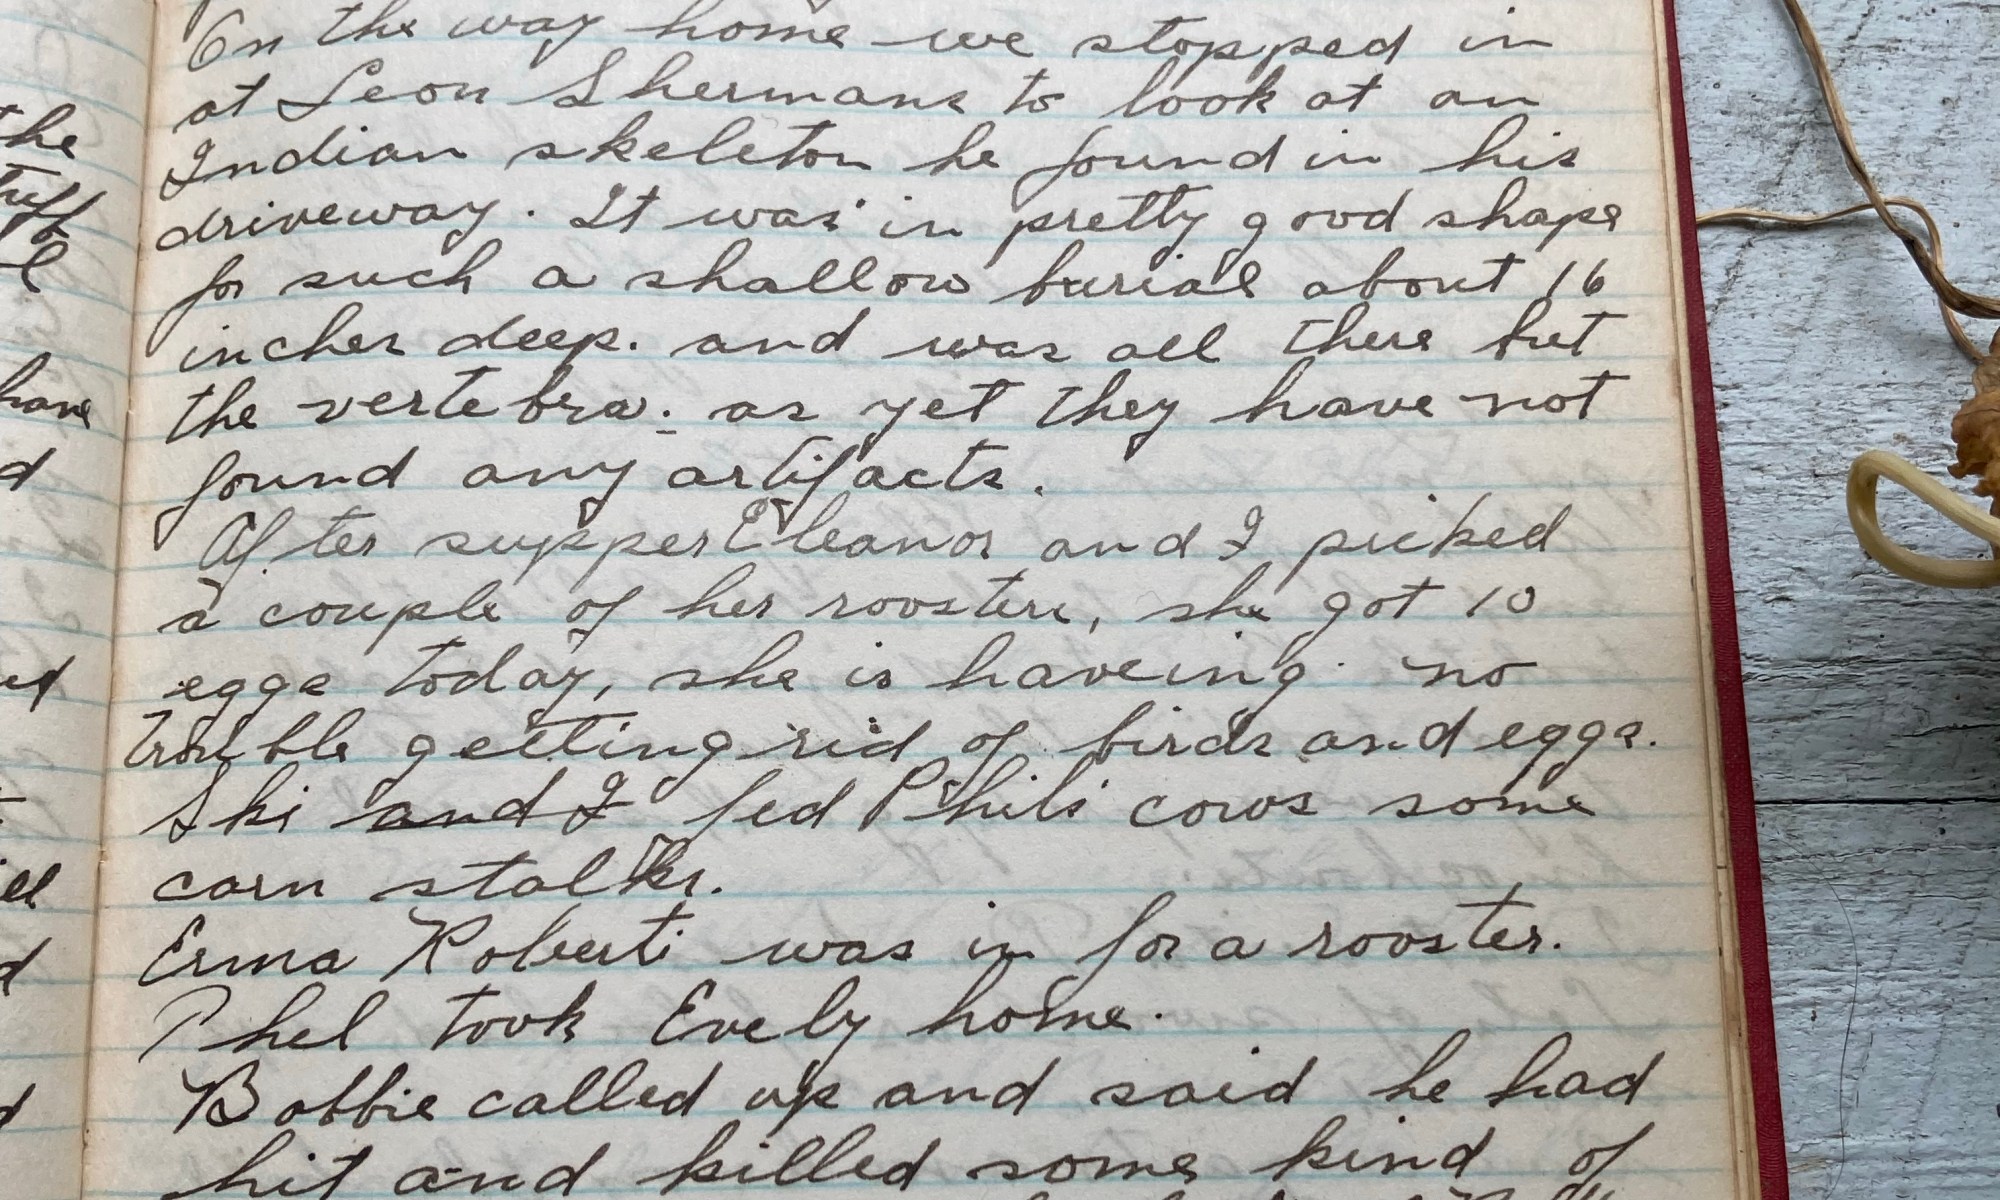 On the way home we stopped in
at Leon Shermans to look at an
Indian skeleton he found in his
driveway. It was in pretty good shape
for such a shallow burial about 16
inches deep. and was all there but
the vertebra. as yet they have not
found any artifacts.
After supper Eleanor and I picked
a couple of her roosters, she got 10
eggs today, she is haveing no
trouble getting rid of birds and eggs.
Ski and I fed Phils cows some
corn stalks.
Erma Roberti was in for a rooster.
Phel took Evely home.
Bobbie called up and said he had
hit and killed some kind of
the
have